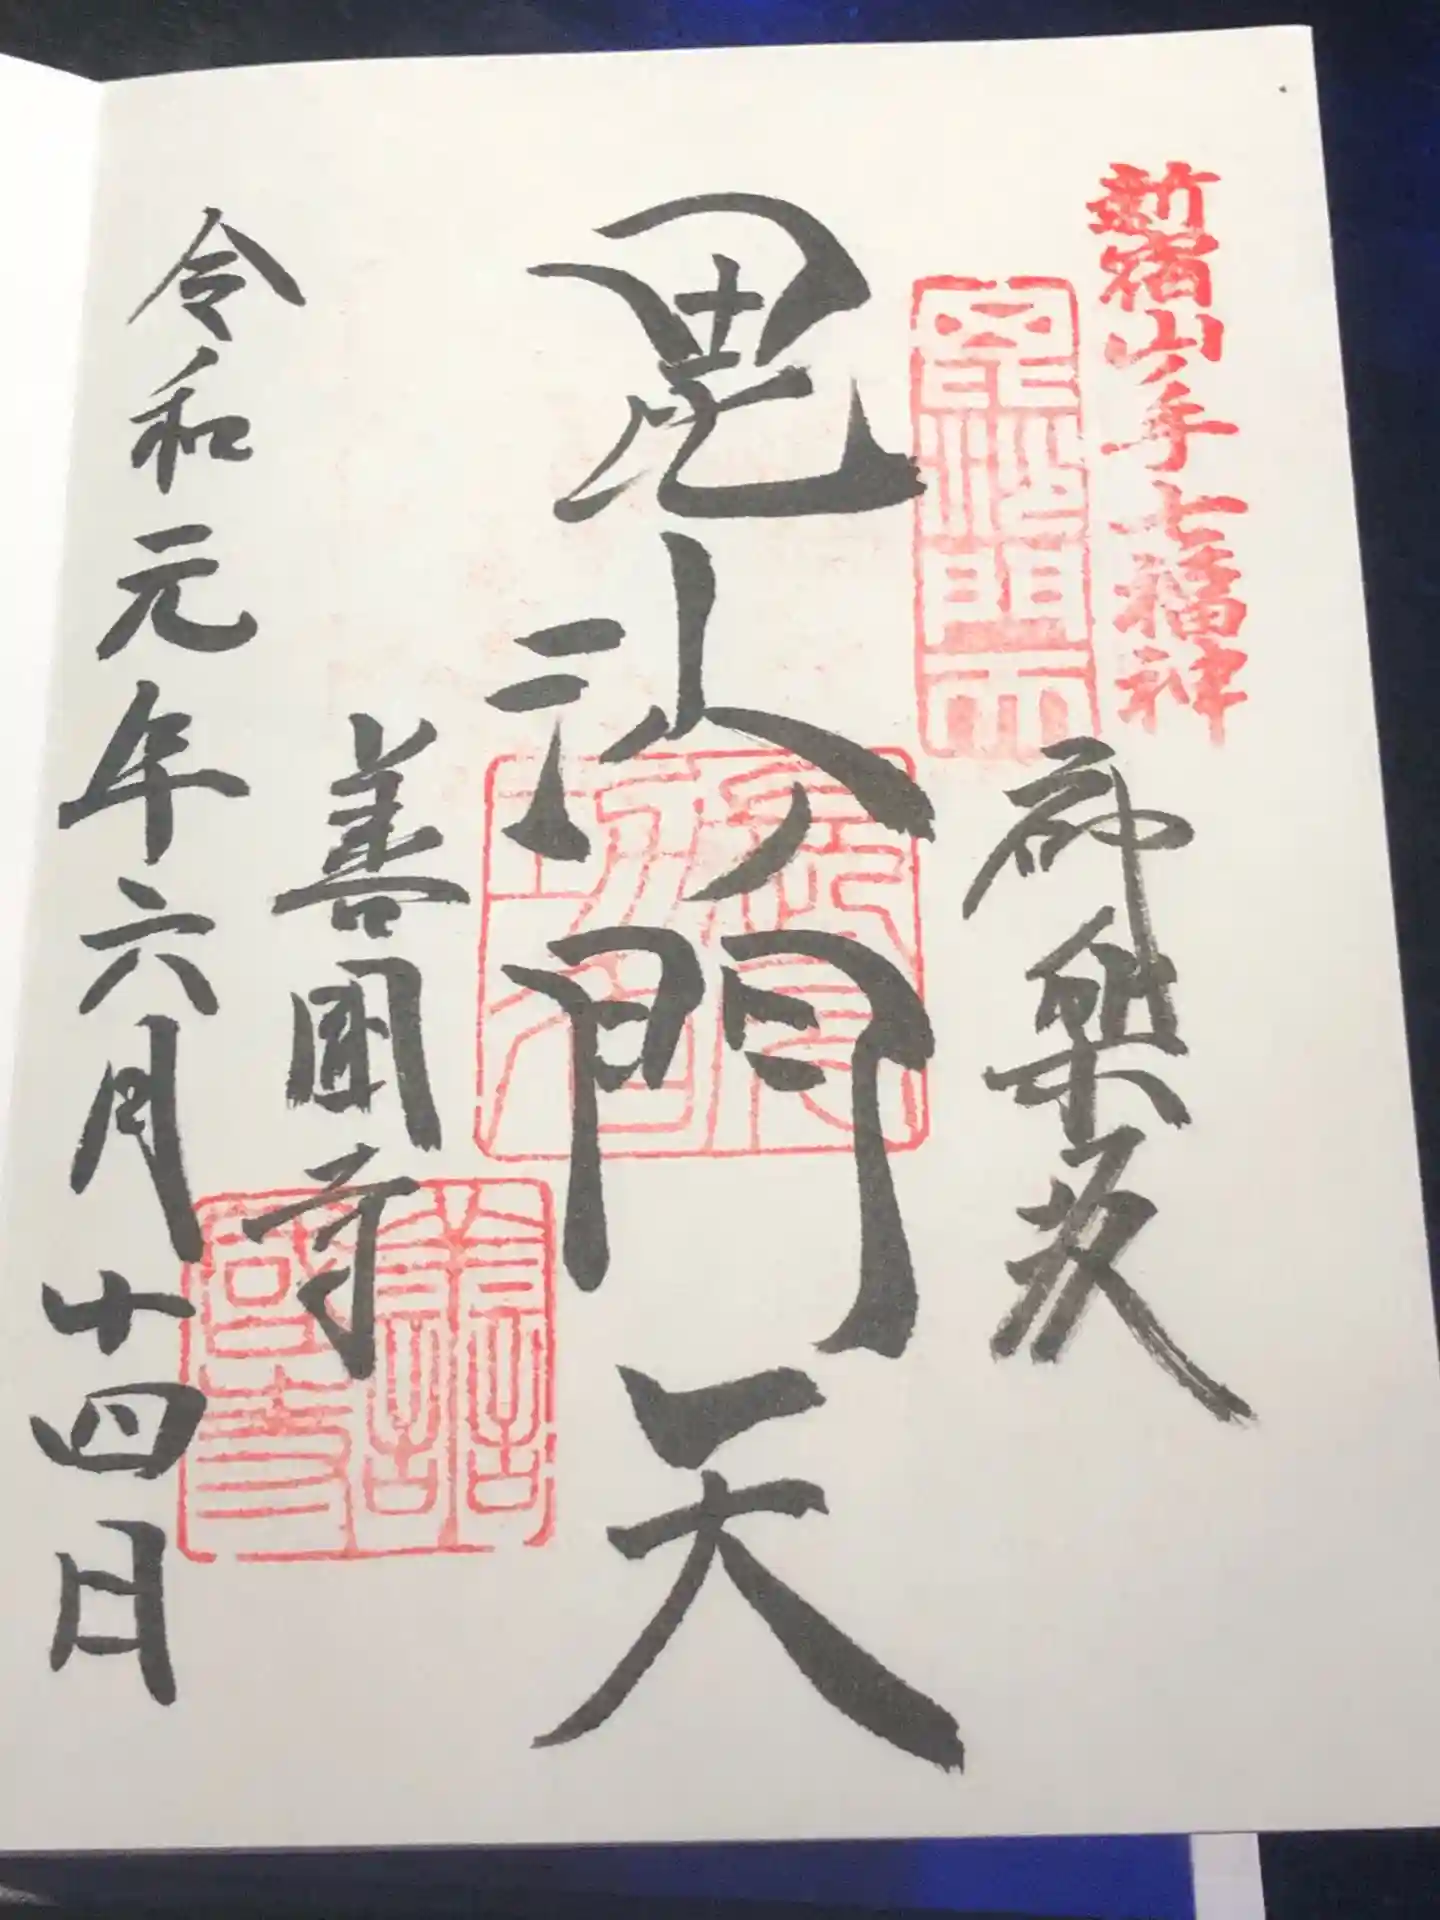 新宿山ノ手七福神
神楽坂
毘沙門天
善國寺
令和元年六月十四日